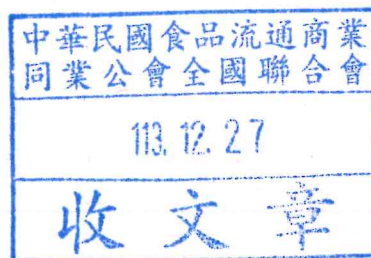 中華民國食品流通商業
同業公會全國聯合會
113.12.27
收文章